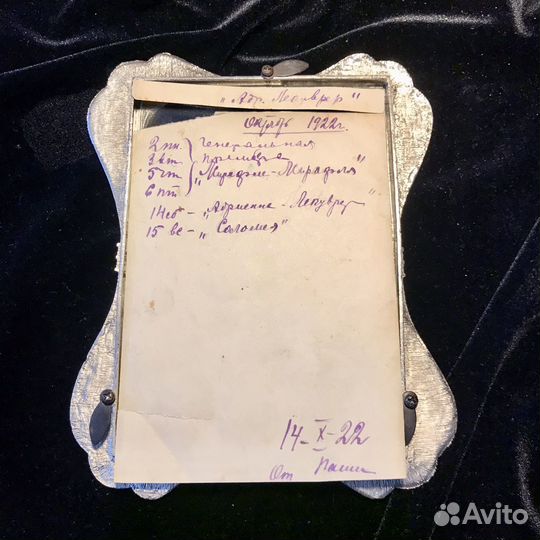 „Адр. Лекуврер"
Октябрь 1922г.
2 пн. } генеральная
3 вт. премьера
5 чт „Мирафле-Мирафля"
6 пт
14 сб - „Адриенне - Лекуврер"
15 вс - „Саломея"
14 - X - 22
От Паши
Avito